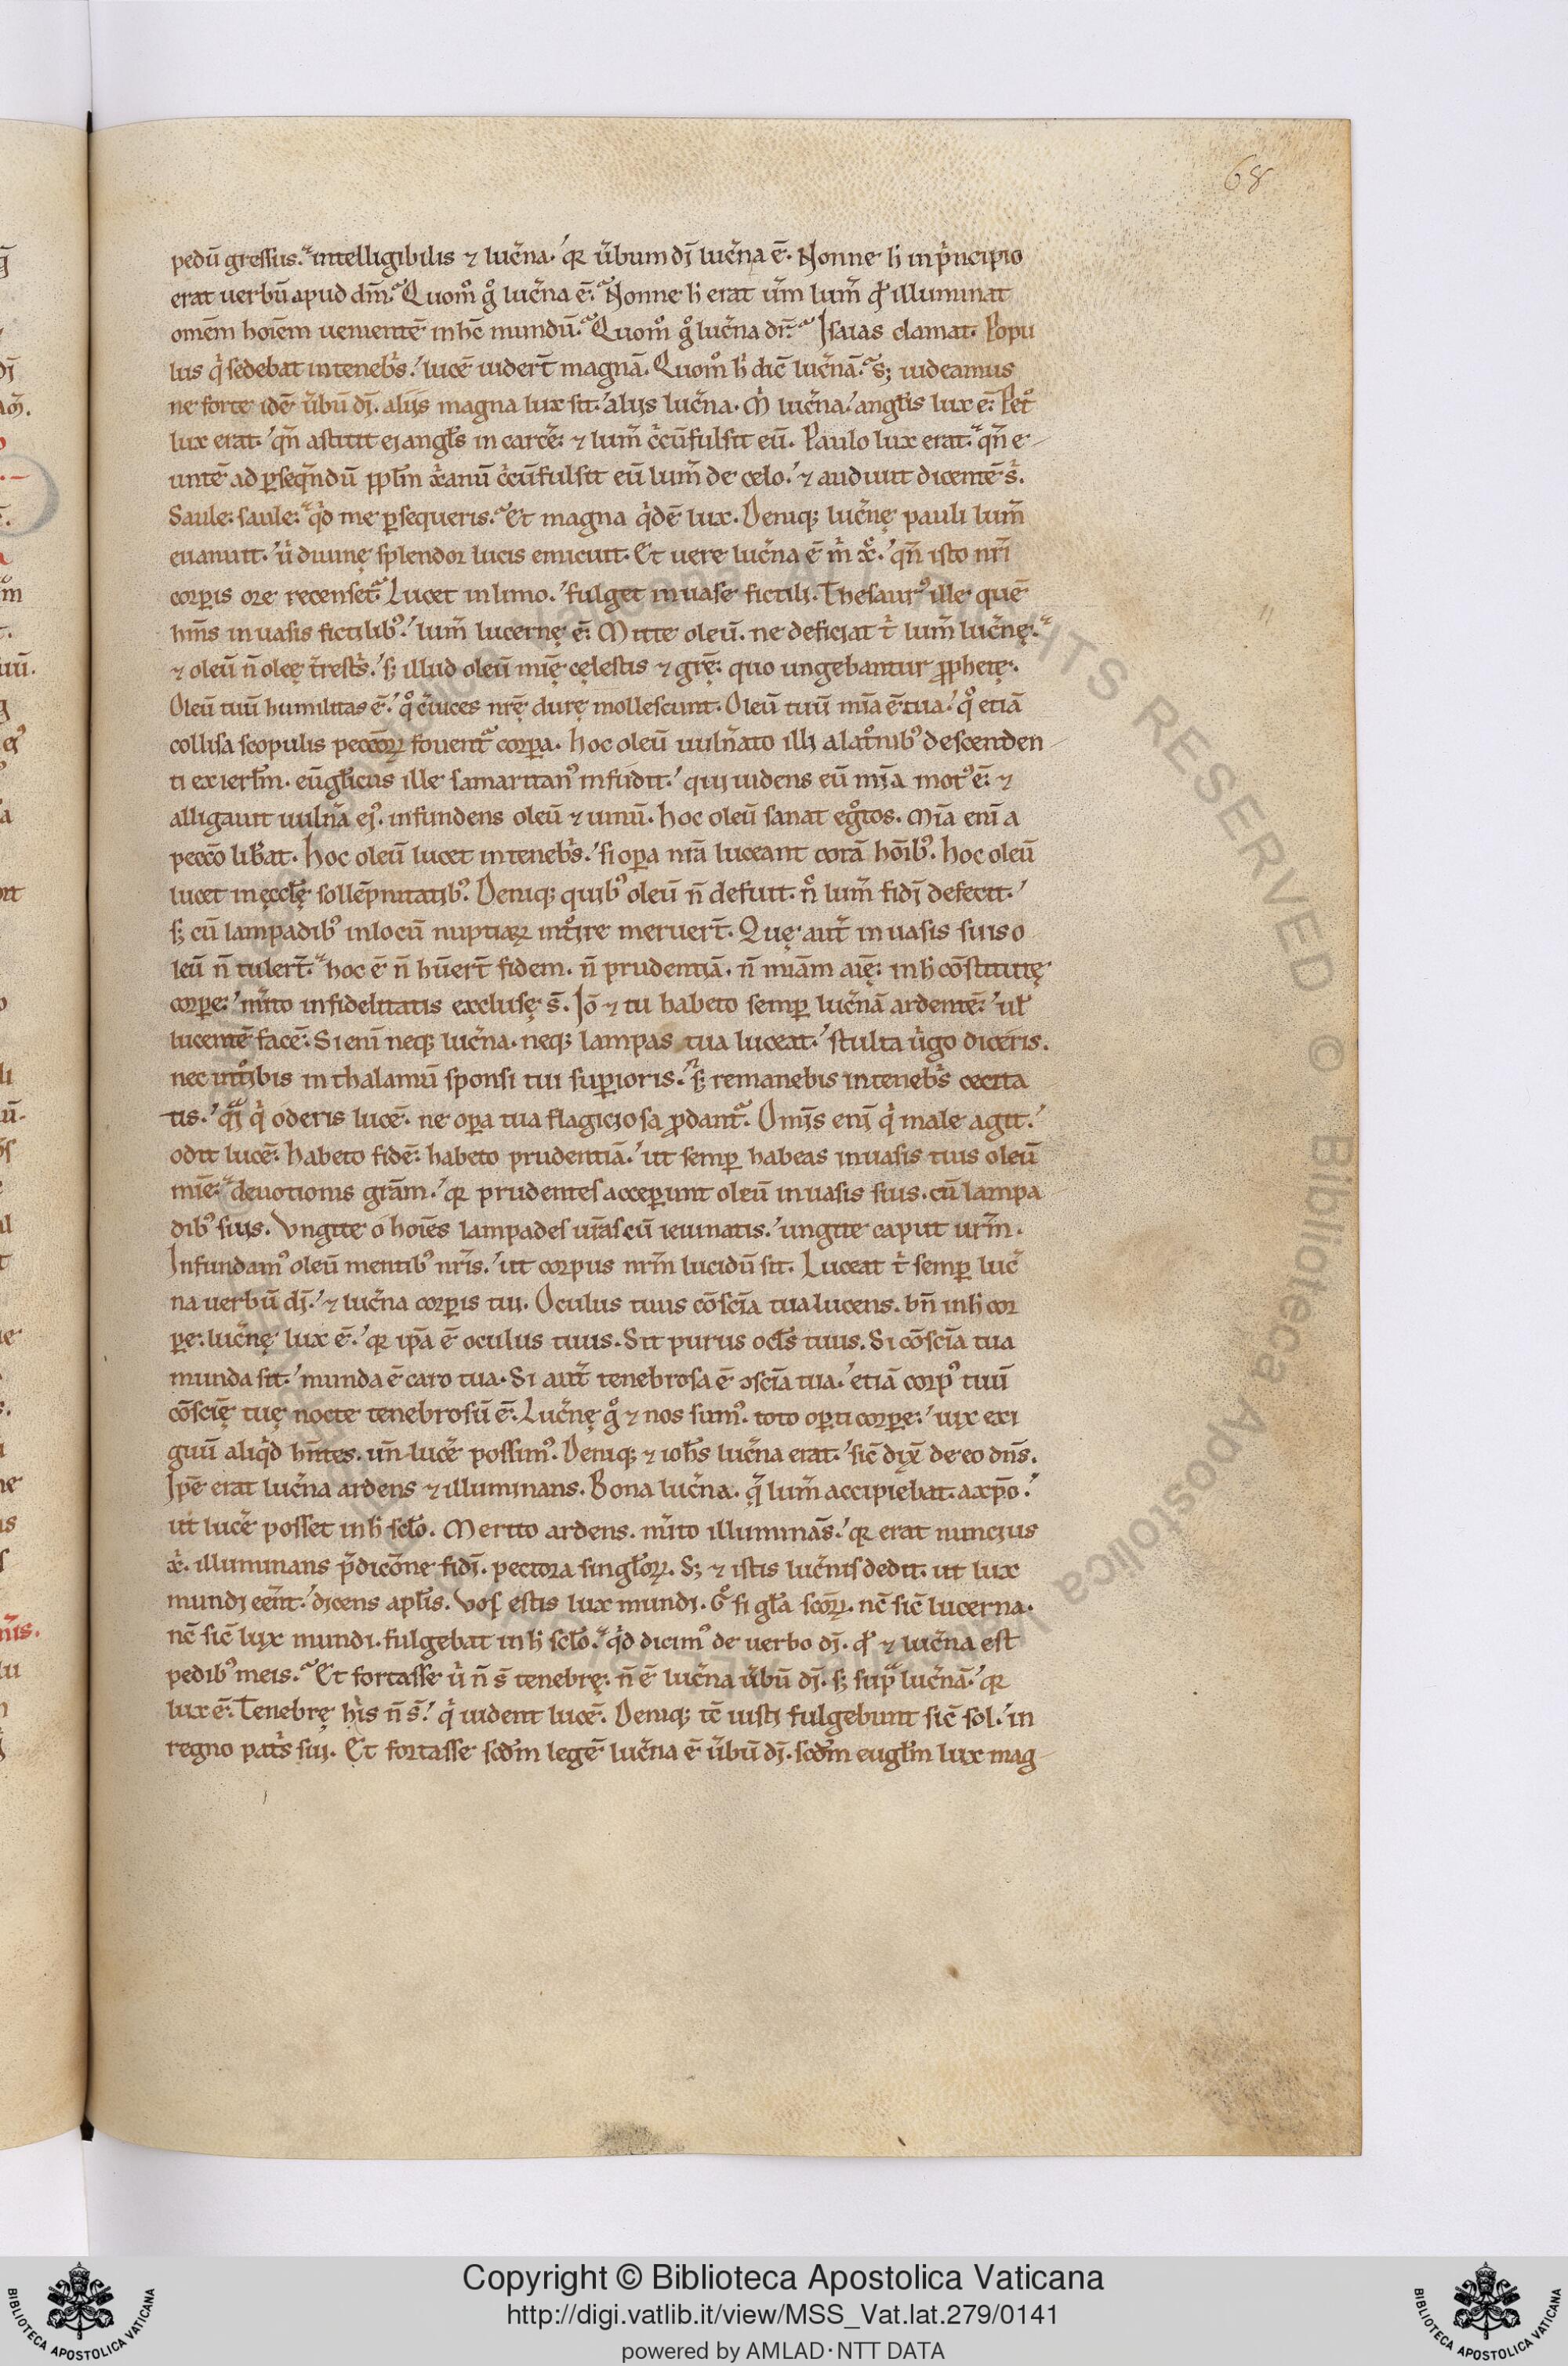 68
pedū gressus. intelligibilis ⁊ luc̄na. qꝛ u̅bum dī luc̄na ē. Nonne h̄ in p̄ncipio
erat uerbū apud dm̄. Quom̊ g̊ luc̄na ē. Nonne h̄ erat um̄ lum̄ qd̄ illuminat
omēm hoīem uenientē in hc̄ mundū. Quom̊ g̊ luc̄na dr̄. Isaias clamat. Popu
lus q̇ sedebat in tenebs̄. lucē uidert̄ magnā. Quom̊ h̄ dic̄ luc̄nā. S; uideamus
ne forte idē u̅bū dī. alijs magna lux sit. alijs luc̄na. M̄ luc̄na. angt̄is lux ē. Pet̊
lux erat. qn̄ astitit ei angt̄s in carc̄e. ⁊ lum̄ c̄cūfulsit eū. Paulo lux erat. qn̄ e
untē ad ꝑseq̄ndū ppl̄m x̄anū c̄cūfulsit eū lum̄ de celo. ⁊ audiuit dicentē s̄.
Saule. saule. q̇d me ꝑsequeris. Et magna q̇dē lux. Deniq; luc̄nę pauli lum̄
euanuit. u̇ diuinę splendor lucis emicuit. Et uere luc̄na ē m̄ x̊. qn̄ isto nr̄i
corꝑis ore recenset᷑. Lucet in limo. fulget in uase fictili. Thesaurꝰ ille quē
hm̄s in uasis fictilibꝰ. lum̄ lucernę ē. Mitte oleū. ne deficiat t̄ lum̄ luc̄nę.
⁊ oleū n̄ oleę t̄rest̄s. s; illud oleū mię̄ cęlestis ⁊ grę̄. quo ungebantur ꝓphetę.
Oleū tuū humilitas ē. q̊ c̄uices nrę̄ durę mollescunt. Oleū tuū mīa ē tua. q̊ etiā
collisa scopulis peccōꝝ fouent᷑ corꝑa. Hoc oleū uuln̄ato illi a lat̊nibꝰ descenden
ti ex ierl̄m. eūgl̄icus ille samaritanꝰ infudit. qui uidens eū mīa motꝰ ē. ⁊
alligauit uuln̄a eiꝰ. infundens oleū ⁊ uinū. Hoc oleū sanat eg̊tos. Mīa enī a
peccō lib̄at. Hoc oleū lucet in tenebs̄. si oꝑa nr̄a luceant corā hōībꝰ. Hoc oleū
lucet in ęccl̄ę sollēpnitatibꝰ. Deniq; quibꝰ oleū n̄ defuit. n̊ lum̄ fidī defecit.
s; cū lampadibꝰ in locū nuptiaꝝ int̊ire meruert̄. Quę aut̄ in uasis suis o
leū n̄ tulert̄. hoc ē n̄ hūert̄ fidem. n̄ prudentiā. n̄ miām aię̄. in h̄ cōstitutę
corꝑe. m̄ito infidelitatis exclusę s̄. Iō ⁊ tu habeto semꝑ luc̄nā ardentē. ul̄
lucentē facē. Si enī neq; luc̄na. neq; lampas tua luceat. stulta u̇go diceris.
nec int̊ibis in thalamū sponsi tui suꝑioris. s; remanebis in tenebs̄ cecita
tis. q̄i q̇ oderis lucē. ne oꝑa tua flagiciosa ꝓdant᷑. Omīs enī q̇ male agit.
odit lucē. Habeto fidē. habeto prudentiā. ut semꝑ habeas in uasis tuis oleū
mīe. deuotionis grām. qꝛ prudentes acceꝑunt oleū in uasis suis. cū lampa
dibꝰ suis. Vngite o hoīes lampades ur̄as cū ieiunatis. ungite caput ur̄m.
Infundamꝰ oleū mentibꝰ nr̄is. ut corpus nr̄m lucidū sit. Luceat t̄ semꝑ luc̄
na uerbū dī. ⁊ luc̄na corꝑis tui. Oculus tuus cōscīa tua lucens. bn̄ in h̄ cor
ꝑe. luc̄nę lux ē. qꝛ ip̄a ē oculus tuus. Sit purus ocl̄s tuus. Si cōscīa tua
munda sit. munda ē caro tua. Si aut̄ tenebrosa ē ↄscīa tua. etiā corpꝰ tuū
cōscię̄ tuę nocte tenebrosū ē. Luc̄nę g̊ ⁊ nos sumꝰ. toto oꝑti corꝑe. uix exi
guū aliq̇d hn̄tes. un̄ luc̄e possimꝰ. Deniq; ⁊ ioh̄s luc̄na erat. sic̄ dix̄ de eo dn̄s.
Ip̄e erat luc̄na ardens ⁊ illuminans. Bona luc̄na. q̄ lum̄ accipiebat a xp̄o.
ut luc̄e posset in h̄ scl̄o. Merito ardens. m̄ito illuminās. qꝛ erat nuncius
x̄. illuminans p̄dicōne fidī. pectora singl̄oꝝ. S; ⁊ istis luc̄nis dedit. ut lux
mundi eēnt. dicens apl̄is. Vos estis lux mundi. G̊ si gl̄a scōꝝ. nc̄ sic̄ lucerna.
nc̄ sic̄ lux mundi. fulgebat in h̄ scl̄o. q̇d dicimꝰ de uerbo dī. qd̄ ⁊ luc̄na est
pedibꝰ meis. Et fortasse u̇ n̄ s̄ tenebrę. n̄ ē luc̄na u̅bū dī. s; sup̄ luc̄nā. qꝛ
lux ē. Tenebrę his n̄ s̄. q̇ uident lucē. Deniq; tc̄ iusti fulgebunt sic̄ sol. in
regno pat̄s sui. Et fortasse scd̄m legē luc̄na ē u̅bū dī. scd̄m eugl̄m lux mag
Copyright © Biblioteca Apostolica Vaticana
http://digi.vatlib.it/view/MSS_Vat.lat.279/0141
powered by AMLAD·NTT DATA
BIBLIOTECA APOSTOLICA VATICANA
BIBLIOTECA APOSTOLICA VATICANA